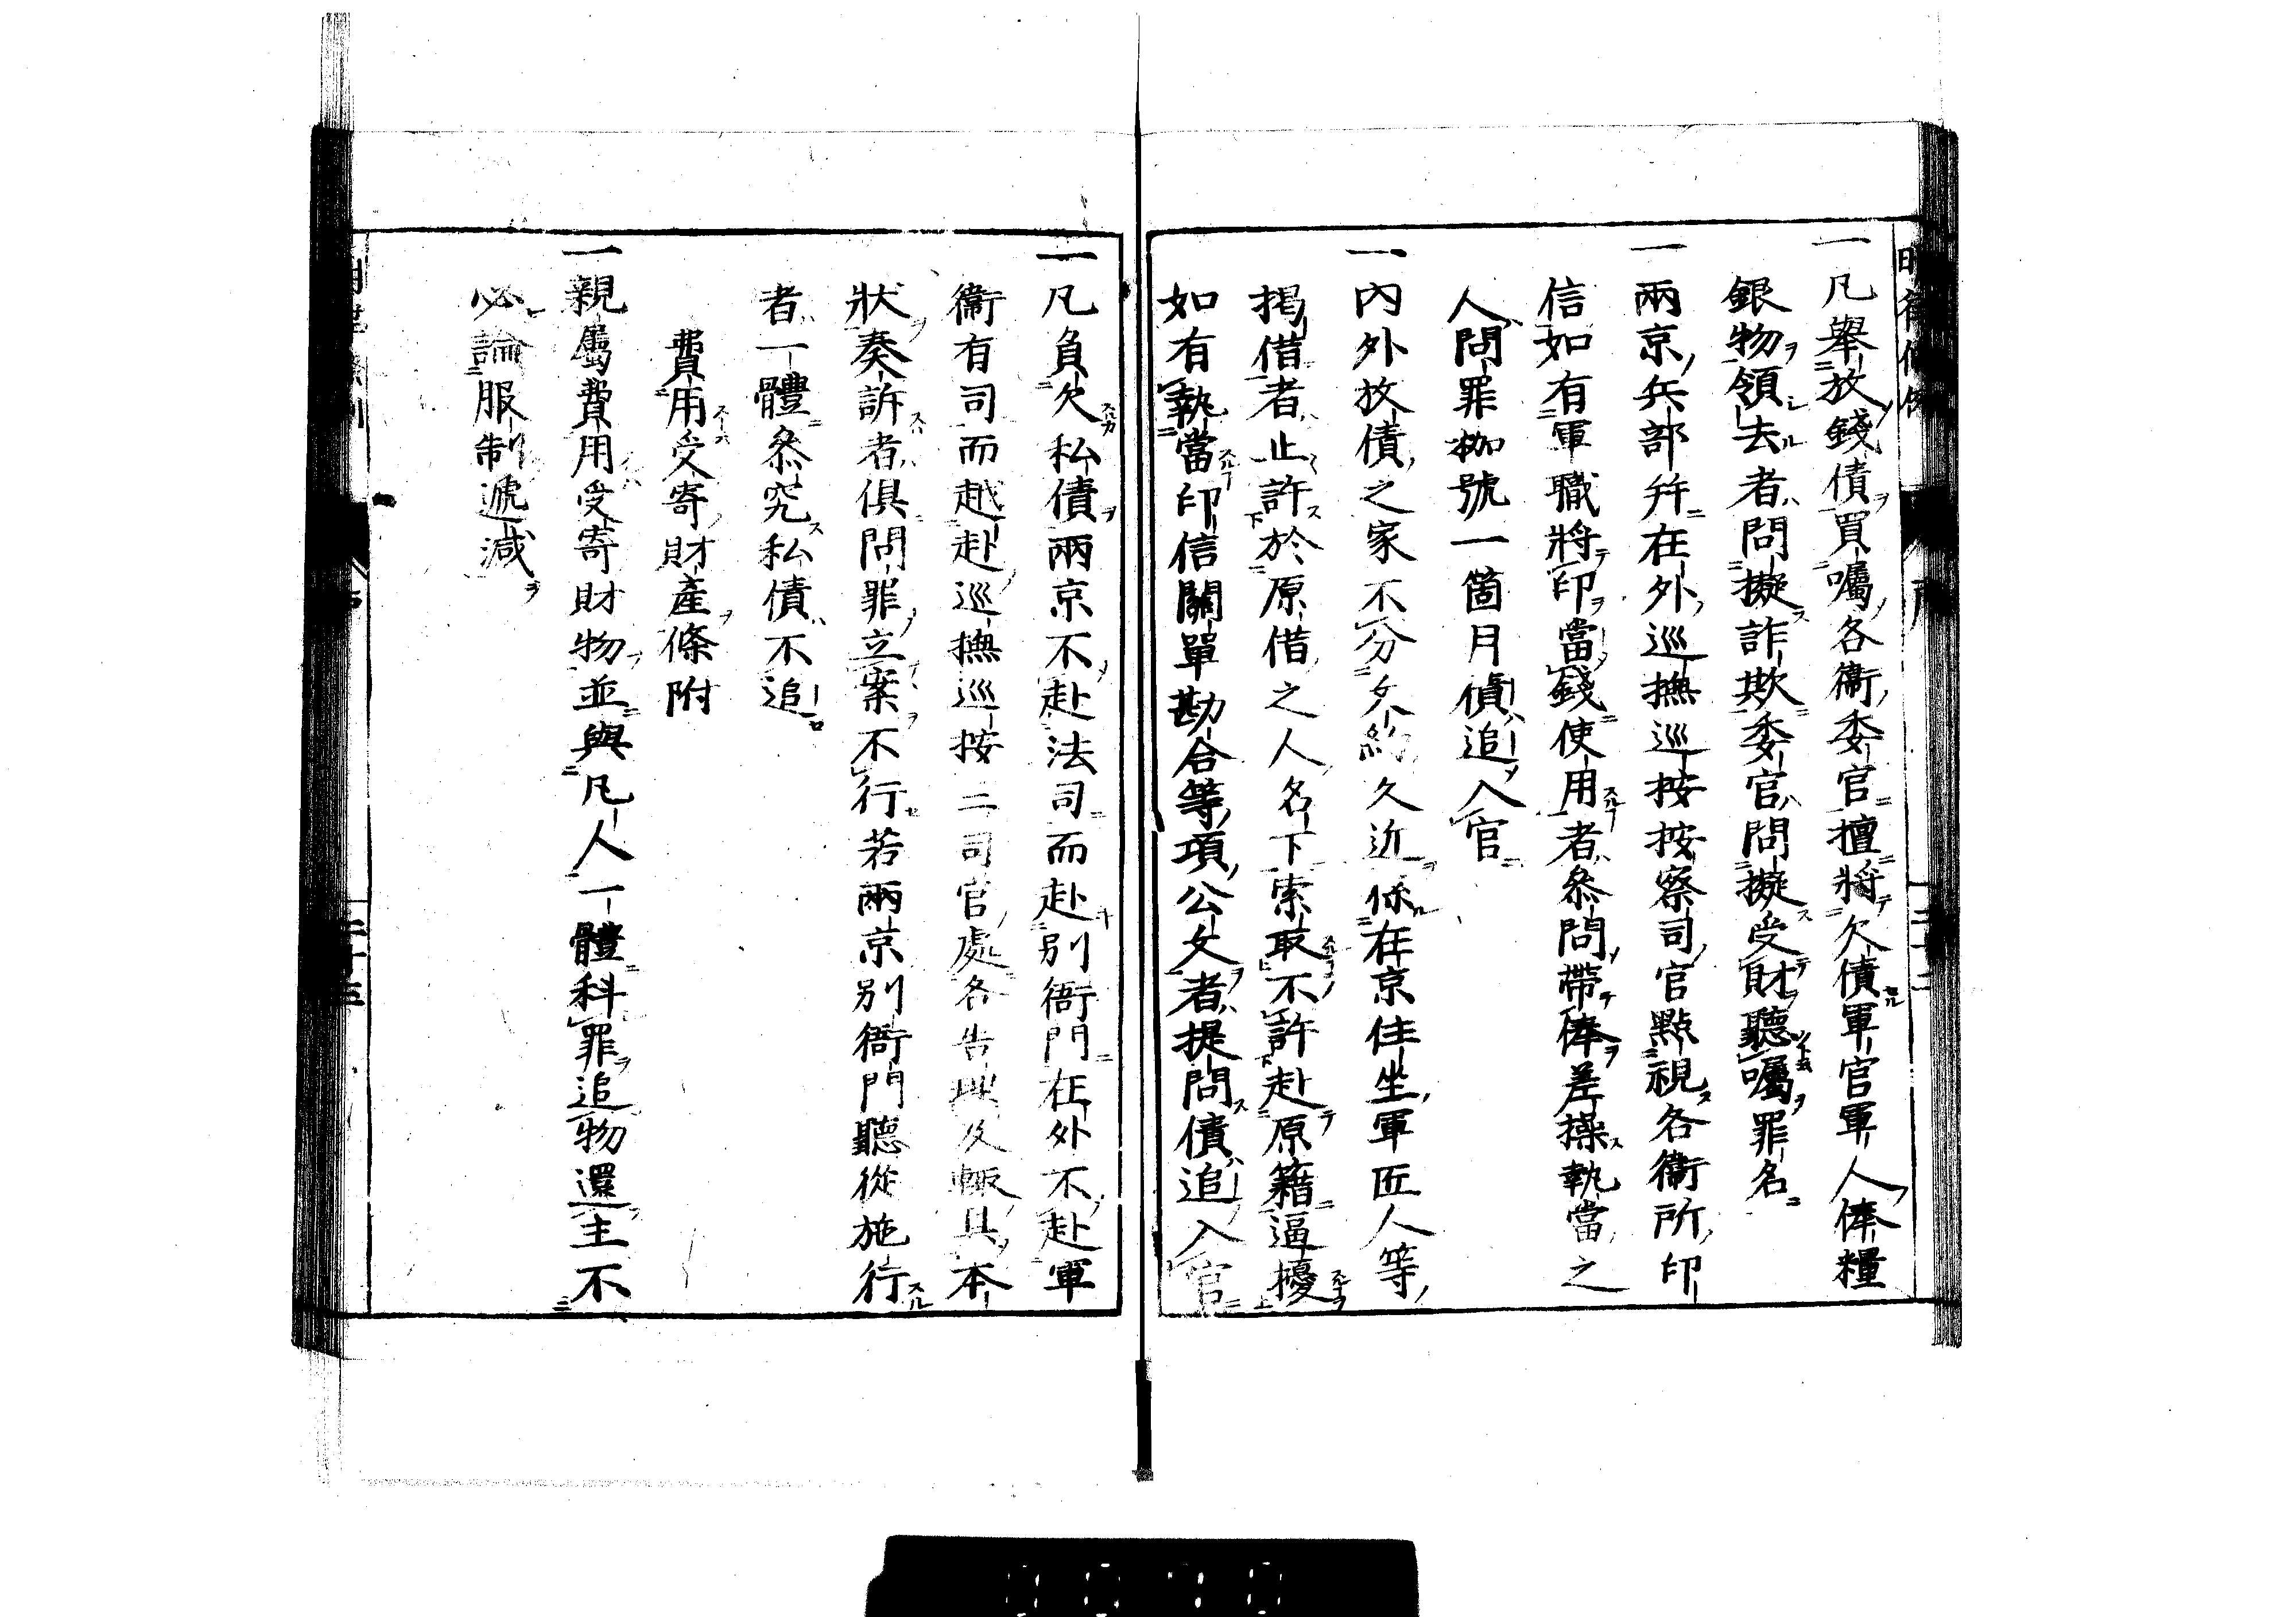 一凡舉放錢債買囑各衞委官擅將欠債軍官軍人俸糧
銀物領去者問擬詐欺委官問擬受財聽囑罪名
一兩京兵部幷在外巡撫巡按按察司官點視各衞所印
信如有軍職將印當錢使用者叅問帶俸差操執當之
人問罪枷號一箇月債追入官
一內外放債之家不分文約久近係在京住坐軍匠人等
揭借者止許於原借之人名下索取不許赴原籍逼擾
如有執當印信關單勘合等項公文者提問債追入官
一凡負欠私債兩京不赴法司而赴別衙門在外不赴軍
衞有司而越赴巡撫巡按三司官處各告理及輒具本
狀奏訴者俱問罪立案不行若兩京別衙門聽從施行
者一體叅究私債不追
費用受寄財產條附
一親屬費用受寄財物並與凡人一體科罪追物還主不
必論服制遞減